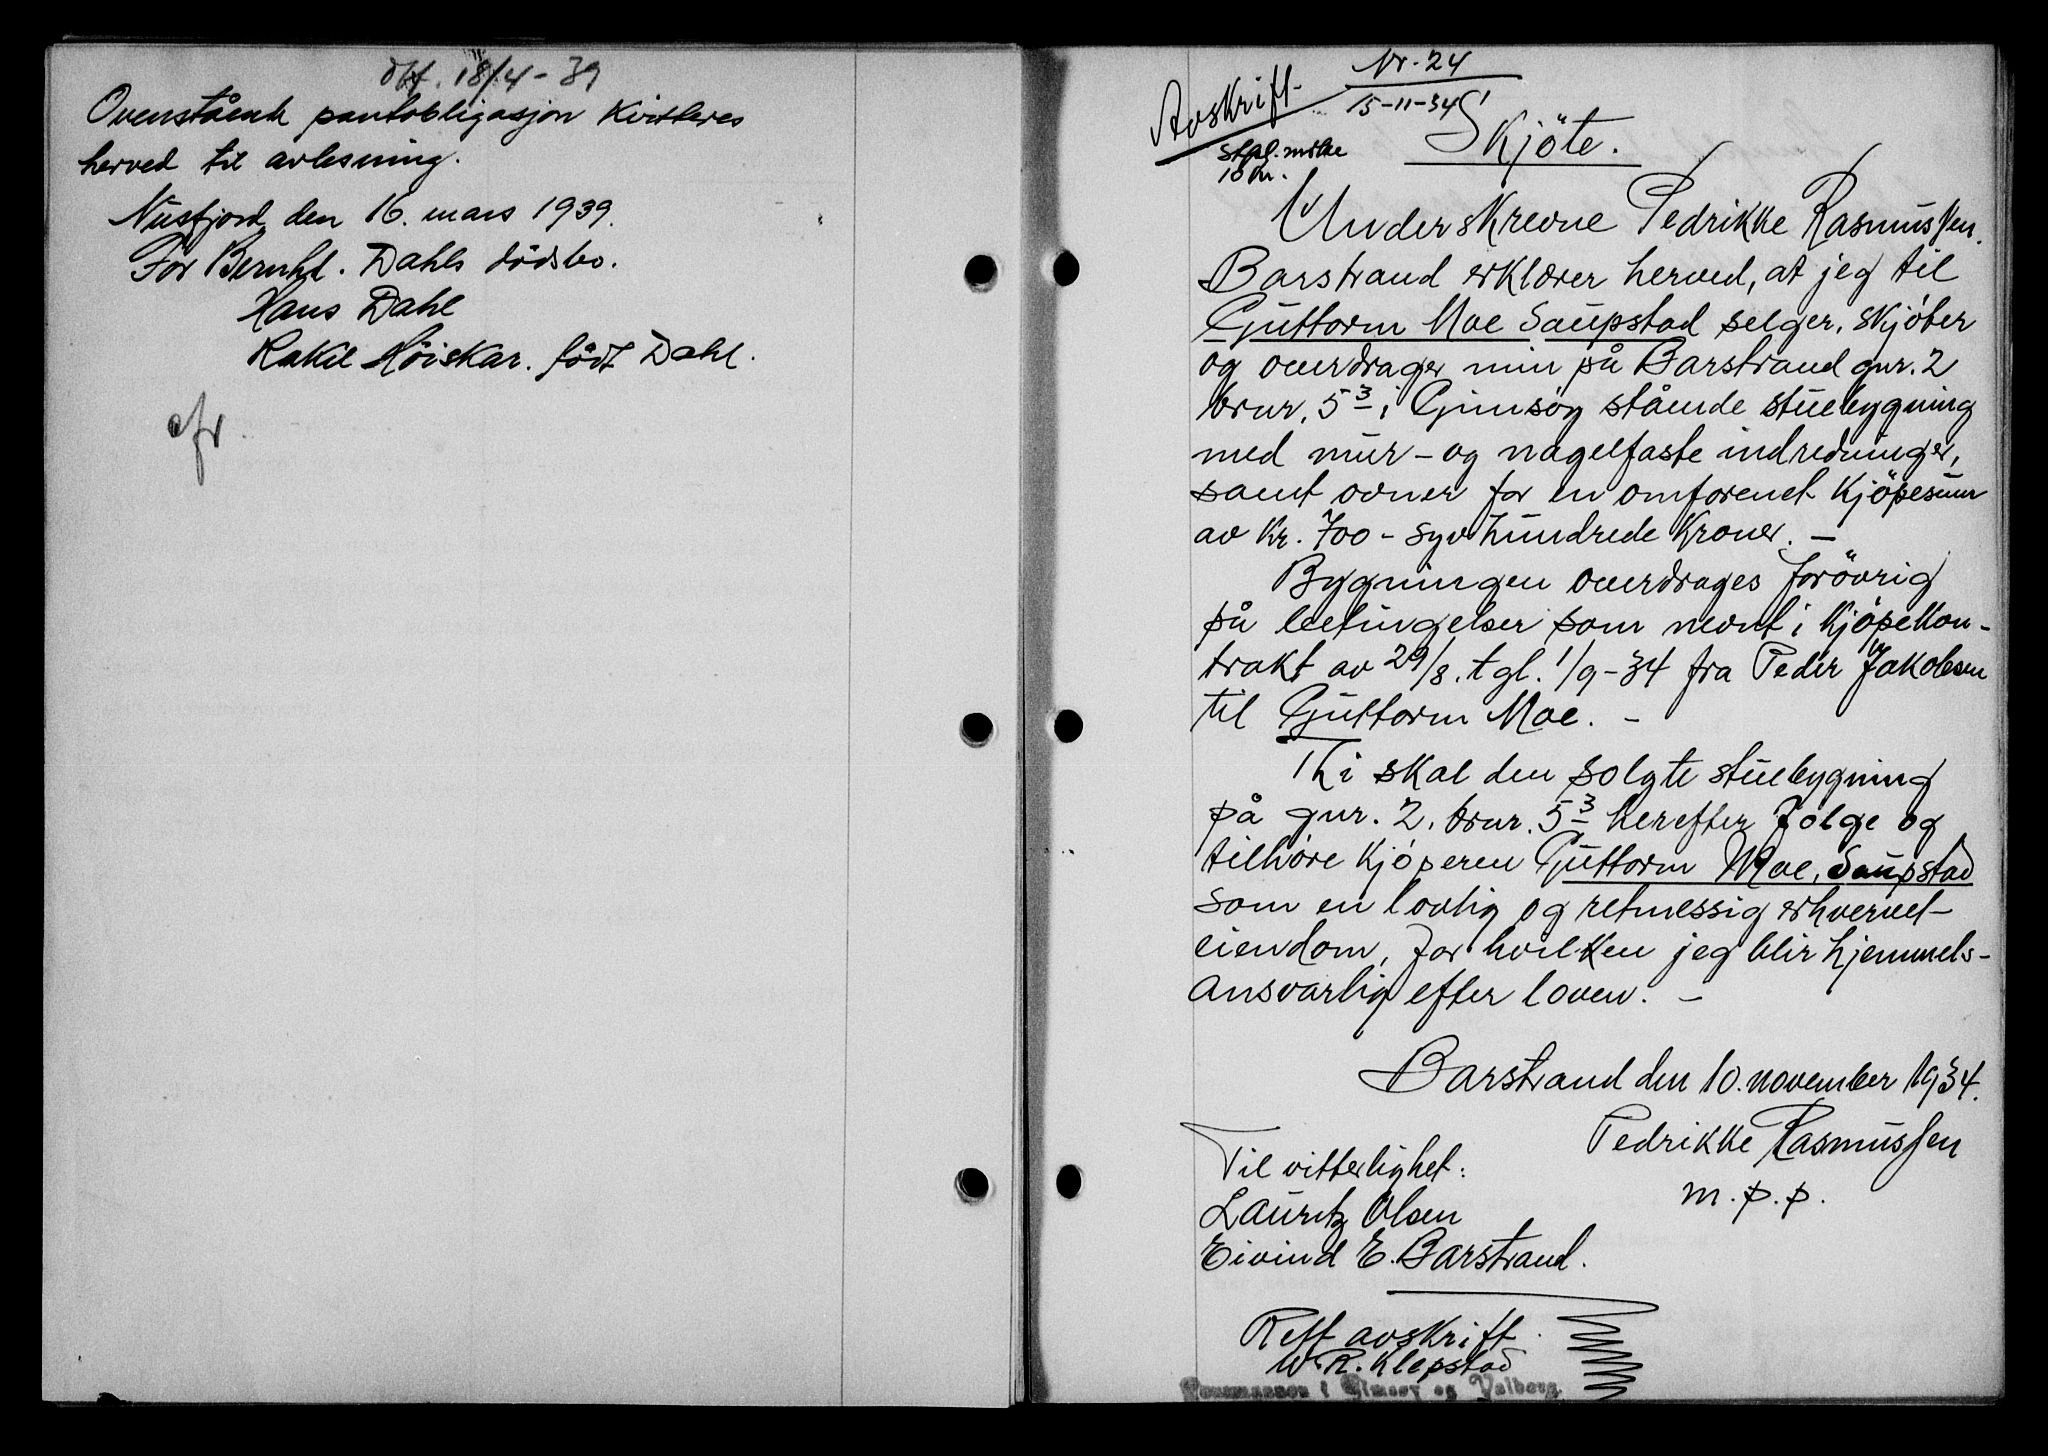 18/4-39
Ovenstående pantobligasjon kvitteres
herved til avlesning.
Nusfjord den 16. mars 1939.
For Bernhd. Dahls dödsbo.
Hans Dahl
Rakel Höiskar. född Dahl.
Nr. 24
15-11-34
Avskrift
Skjöte.
Stpl. merke
10 kr.
Underskrevne Pedrikke Rasmussen,
Barstrand erklærer herved, at jeg til
Guttorm Moe Saupstad selger, skjöter
og overdrager min på Barstrand gnr. 2
brnr. 5³ i Gimsöy stående stuebygning
med mur- og nagelfaste indredninger,
samt ovner for en omforenet kjöpesum
av kr. 700 - syv hundrede kroner. -
Bygningen overdrages forövrig
på betingelser som nevnt i kjöpekon-
trakt av 29/8. tgl. 1/9-34 fra Peder Jakobsen
til Guttorm Moe. -
Thi skal den solgte stuebygning
på gnr. 2. brnr. 5³ herefter følge og
tilhöre kjöperen Guttorm Moe, Saupstad
som en lovlig og retmessig erhvervet
eiendom, for hvilken jeg blir hjemmels-
ansvarlig efter loven. -
Barstrand den 10. november 1934.
Pedrikke Rasmussen
m.p.p.
Til vitterlighet:
Lauritz Olsen
Eivind E. Barstrand.
Rett avskrift
W. R. Klepstad
Lensmannen i Gimsøy og Valberg.